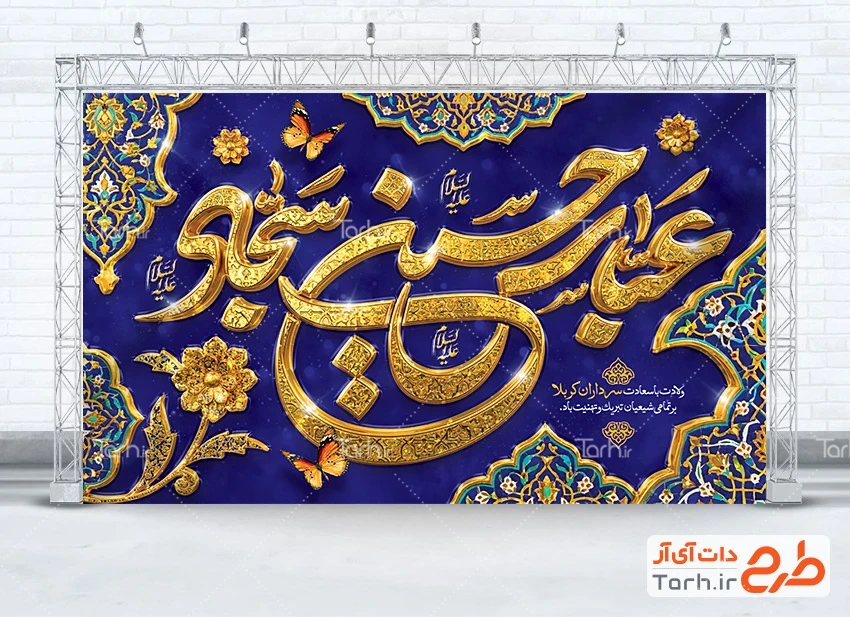 حسین
عباس
سجاد
علیه السلام
علیه السلام
علیه السلام
ولادت باسعادت سرداران کربلا
بر تمامی شیعیان تبریک و تهنیت باد.
طرح
دات آی آر
Tarh.ir